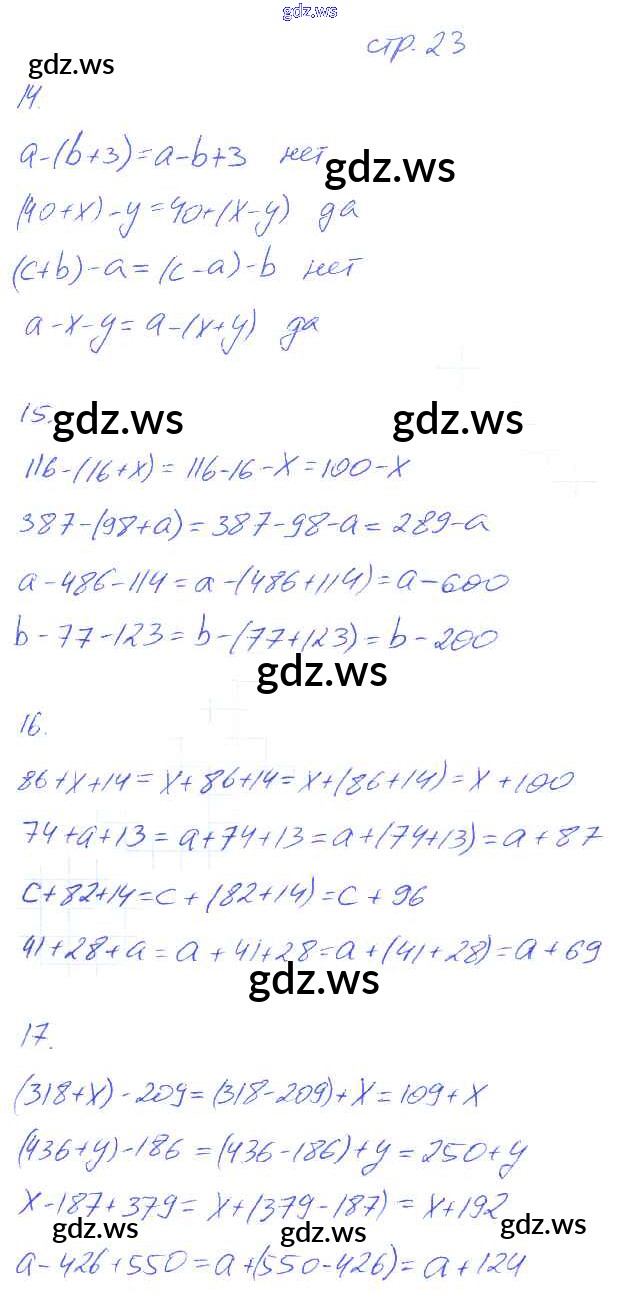 gdz.ws
стр. 23
gdz.ws
14.
a-(b+3)=a-b+3 нет
gdz.ws
(40+x)-y=40+(x-y) да
(c+b)-a=(c-a)-b нет
a-x-y=a-(x+y) да
15.
gdz.ws gdz.ws
116-(16+x)=116-16-x=100-x
387-(98+a)=387-98-a=289-a
a-486-114=a-(486+114)=a-600
b-77-123=b-(77+123)=b-200
gdz.ws
16.
86+x+14=x+86+14=x+(86+14)=x+100
74+a+13=a+74+13=a+(74+13)=a+87
c+82+14=c+(82+14)=c+96
41+28+a=a+41+28=a+(41+28)=a+69
gdz.ws
17.
(318+x)-209=(318-209)+x=109+x
(436+y)-186=(436-186)+y=250+y
x-187+379=x+(379-187)=x+192
gdz.ws gdz.ws gdz.ws
a-426+550=a+(550-426)=a+124